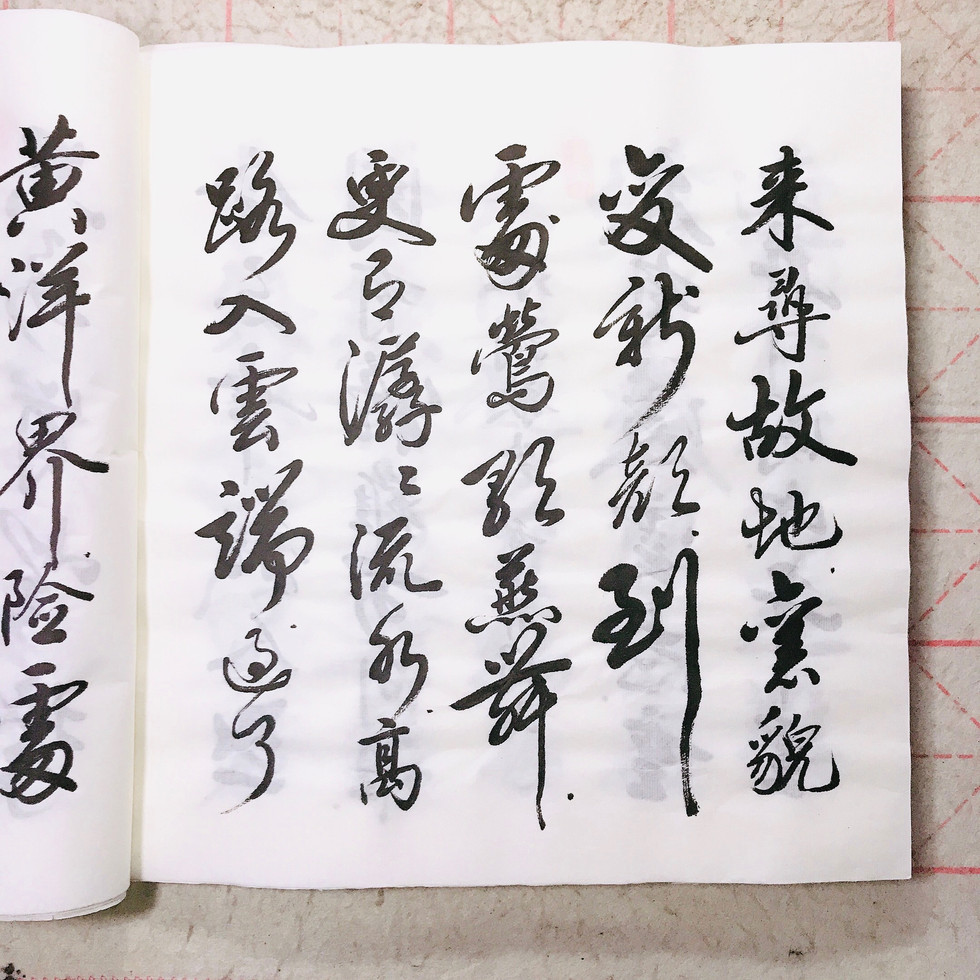 来尋故地舊貌
变新颜到
處鶯歌燕舞
更有潺〻流水高
路入雲端過了
黄洋界险處